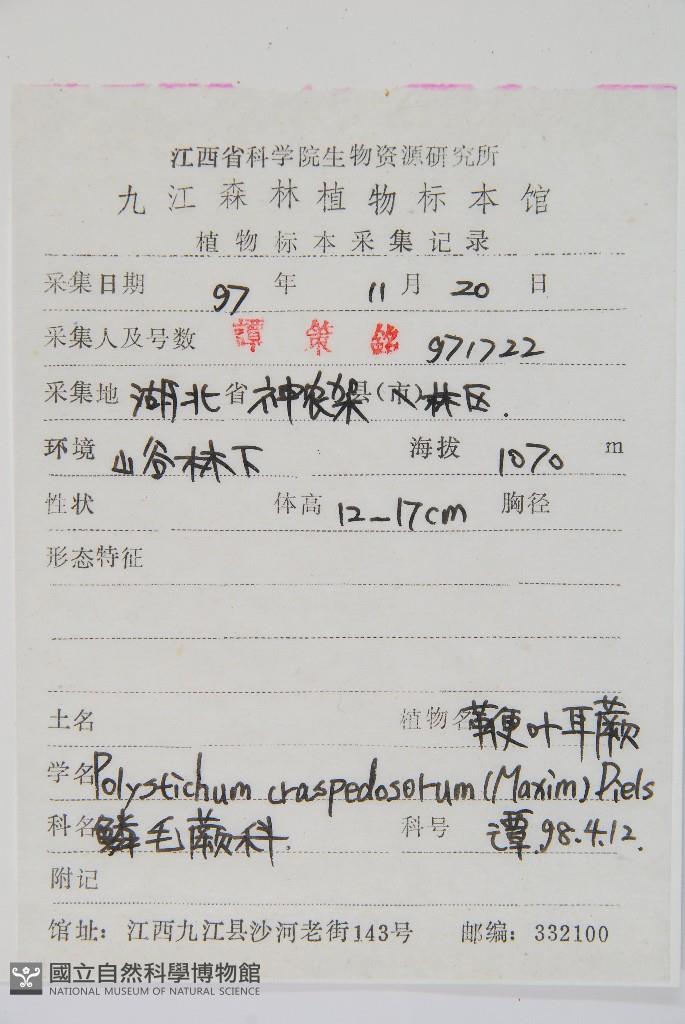 江西省科学院生物资源研究所
九江森林植物标本馆
植物标本采集记录
采集日期 97 年 11 月 20 日
采集人及号数 譚策銘 971722
采集地 湖北 省 神农架 县(市) 林区.
环境 山谷林下 海拔 1070 m
性状 体高 12—17cm 胸径
形态特征
土名 植物名 鞭叶耳蕨
学名 Polystichum craspedosorum (Maxim) Diels
科名 鳞毛蕨科. 科号 谭.98.4.12.
附记
馆址：江西九江县沙河老街143号 邮编：332100
國立自然科學博物館
NATIONAL MUSEUM OF NATURAL SCIENCE